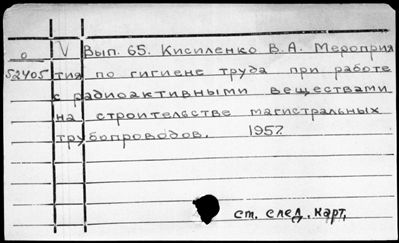 о V Вып. 65. Кисиленко В.А. Мероприя
52405 тия по гигиене труда при работе
с радиоактивными веществами
на строительстве магистральных
трубопроводов. 1957
ст. след. карт.